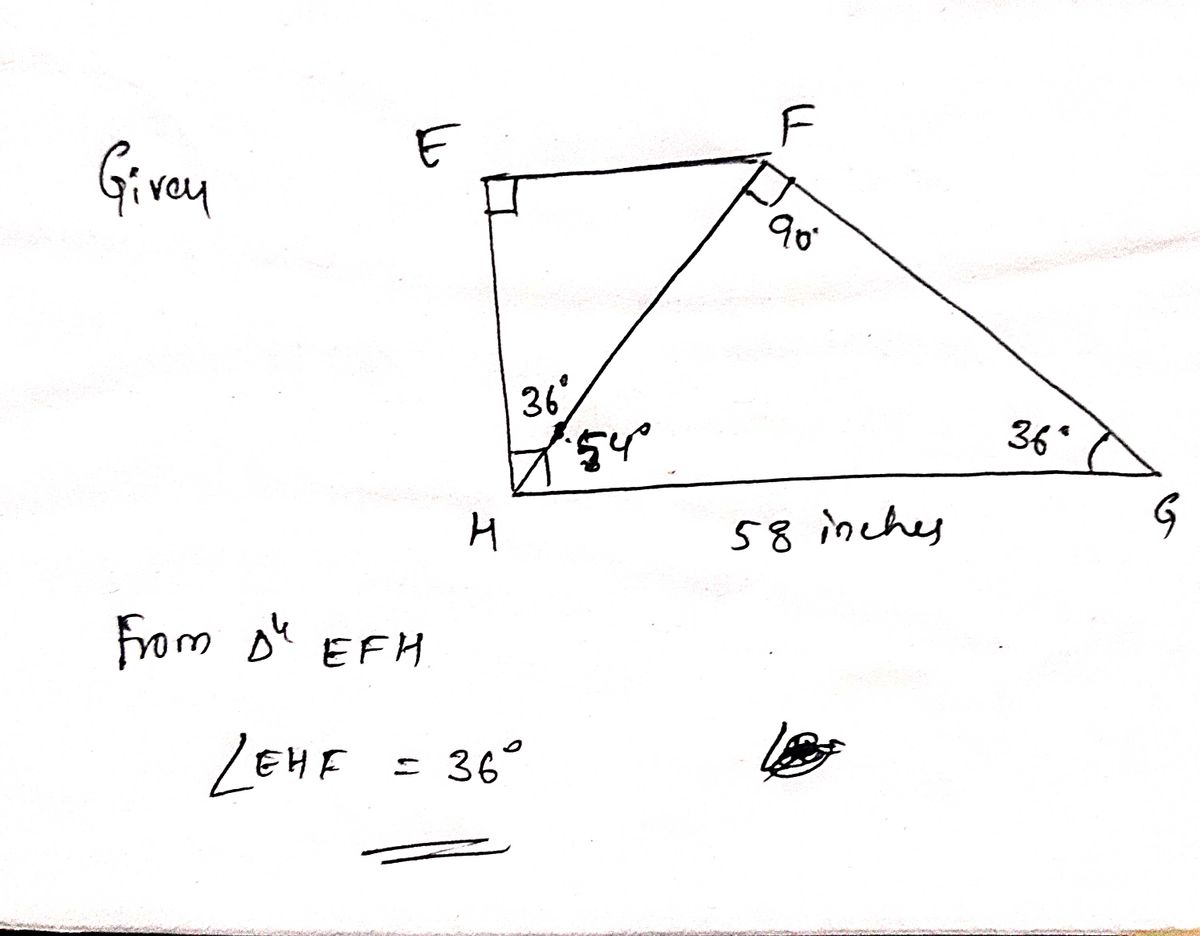 Given
E
F
90°
36°
54°
36°
H
58 inches
G
From Δ EFH
∠EHF = 36°